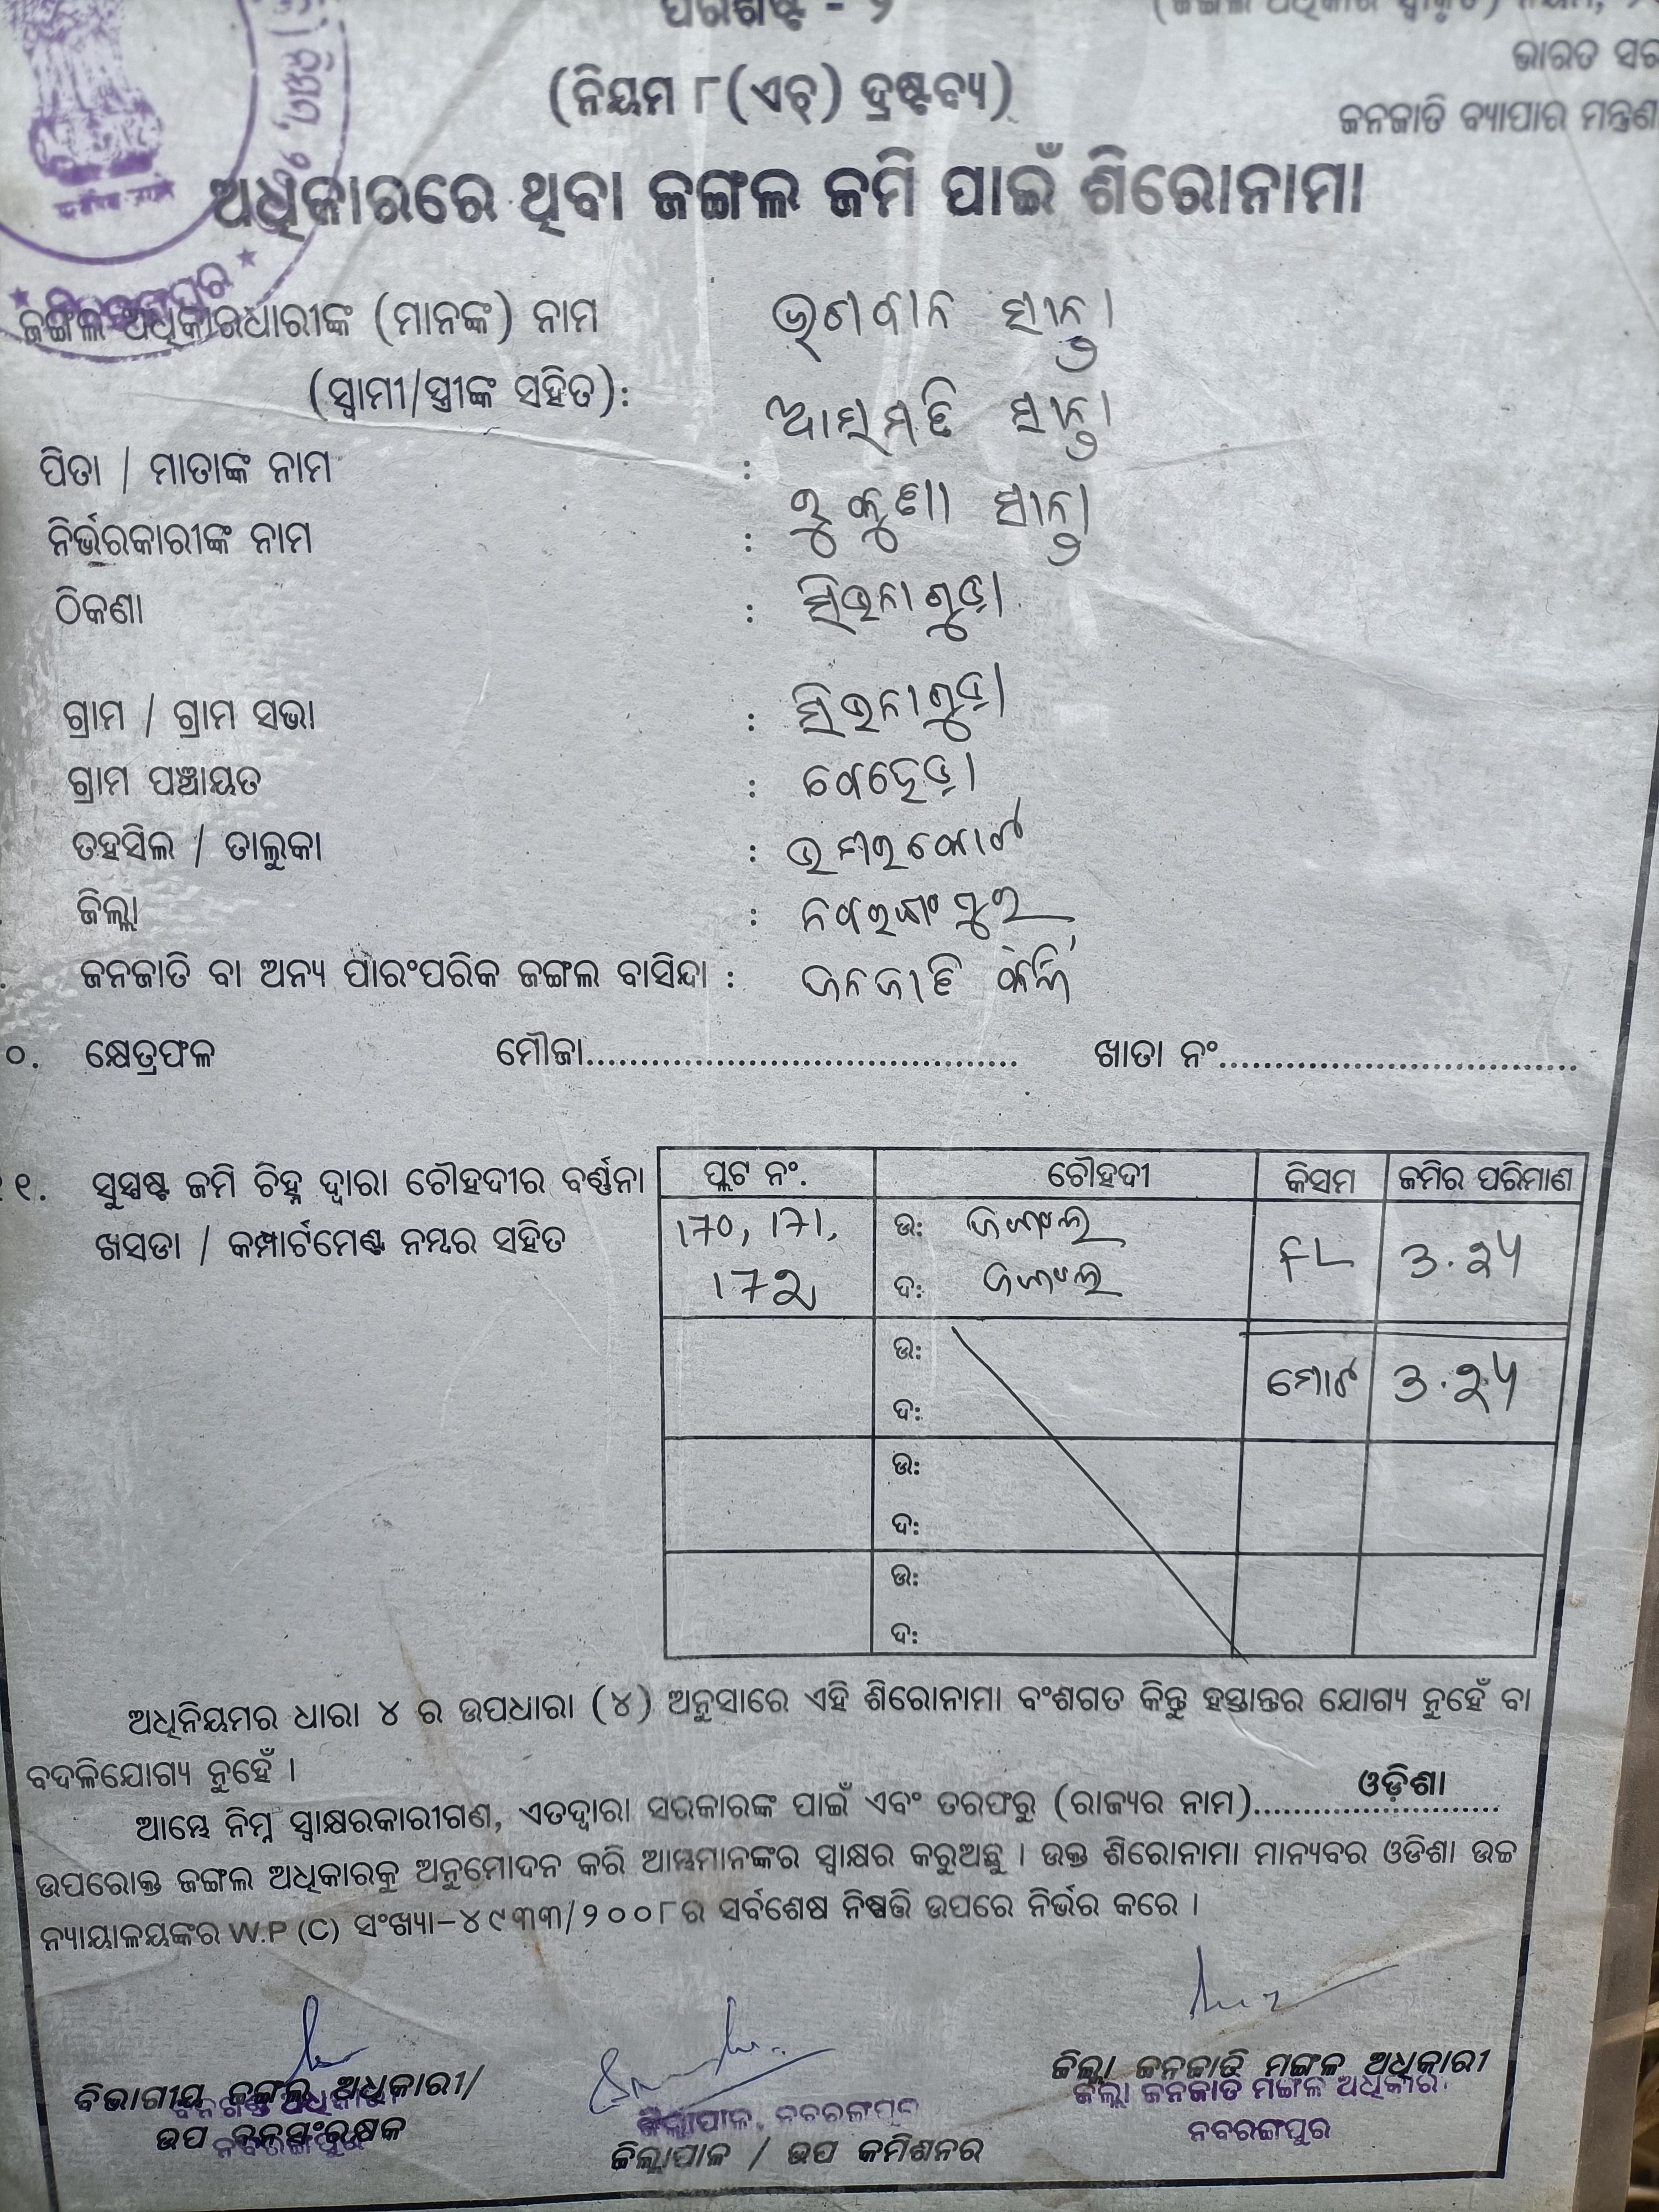 ପରିଶିଷ୍ଟ - ୨
(ନିୟମ ୮(ଏଚ୍) ଦ୍ରଷ୍ଟବ୍ୟ)
ଭାରତ ସର
ଜନଜାତି ବ୍ୟାପାର ମନ୍ତ୍ରଣା
ଅଧିକାରରେ ଥିବା ଜଙ୍ଗଲ ଜମି ପାଇଁ ଶିରୋନାମା
ଜଙ୍ଗଲ ଅଧିକାରଧାରୀଙ୍କ (ମାନଙ୍କ) ନାମ ଭଗବାନ ସାନ୍ତା
(ସ୍ୱାମୀ/ସ୍ତ୍ରୀଙ୍କ ସହିତ):
ପିତା / ମାତାଙ୍କ ନାମ :
ନିର୍ଭରକାରୀଙ୍କ ନାମ : ସାନ୍ତା
ଠିକଣା :
ଗ୍ରାମ / ଗ୍ରାମ ସଭା :
ଗ୍ରାମ ପଞ୍ଚାୟତ : ବେହେଡ଼ା
ତହସିଲ / ତାଲୁକା : ଉମରକୋଟ
ଜିଲ୍ଲା : ନବରଙ୍ଗପୁର
ଜନଜାତି ବା ଅନ୍ୟ ପାରଂପରିକ ଜଙ୍ଗଲ ବାସିନ୍ଦା : ଜନଜାତି
୦. କ୍ଷେତ୍ରଫଳ ମୌଜା....................................... ଖାତା ନଂ................................
୧. ସୁସ୍ପଷ୍ଟ ଜମି ଚିହ୍ନ ଦ୍ୱାରା ଚୌହଦୀର ବର୍ଣ୍ଣନା
ଖସଡା / କମ୍ପାର୍ଟମେଣ୍ଟ ନମ୍ବର ସହିତ
ପ୍ଲଟ ନଂ. ଚୌହଦୀ କିସମ ଜମିର ପରିମାଣ
170, 171, ଉ: ଜଙ୍ଗଲ FL ୩.୨୪
172 ଦ: ଜଙ୍ଗଲ
ଉ: ମୋଟ ୩.୨୪
ଦ:
ଉ:
ଦ:
ଉ:
ଦ:
ଅଧିନିୟମର ଧାରା ୪ ର ଉପଧାରା (୪) ଅନୁସାରେ ଏହି ଶିରୋନାମା ବଂଶଗତ କିନ୍ତୁ ହସ୍ତାନ୍ତର ଯୋଗ୍ୟ ନୁହେଁ ବା
ବଦଳିଯୋଗ୍ୟ ନୁହେଁ ।
ଆମ୍ଭେ ନିମ୍ନ ସ୍ୱାକ୍ଷରକାରୀଗଣ, ଏତଦ୍ୱାରା ସରକାରଙ୍କ ପାଇଁ ଏବଂ ତରଫରୁ (ରାଜ୍ୟର ନାମ)......ଓଡ଼ିଶା......
ଉପରୋକ୍ତ ଜଙ୍ଗଲ ଅଧିକାରକୁ ଅନୁମୋଦନ କରି ଆମ୍ଭମାନଙ୍କର ସ୍ୱାକ୍ଷର କରୁଅଛୁ । ଉକ୍ତ ଶିରୋନାମା ମାନ୍ୟବର ଓଡିଶା ଉଚ୍ଚ
ନ୍ୟାୟାଳୟଙ୍କର W.P (C) ସଂଖ୍ୟା-୪୯୩୩/୨୦୦୮ର ସର୍ବଶେଷ ନିଷ୍ପତ୍ତି ଉପରେ ନିର୍ଭର କରେ ।
ବିଭାଗୀୟ ଜଙ୍ଗଲ ଅଧିକାରୀ/
ଉପ ବନସଂରକ୍ଷକ
ନବରଙ୍ଗପୁର
ଜିଲ୍ଲାପାଳ, ନବରଙ୍ଗପୁର
ଜିଲ୍ଲାପାଳ / ଉପ କମିଶନର
ଜିଲ୍ଲା ଜନଜାତି ମଙ୍ଗଳ ଅଧିକାରୀ
ଜିଲ୍ଲା ଜନଜାତି ମଙ୍ଗଳ ଅଧିକାରୀ
ନବରଙ୍ଗପୁର